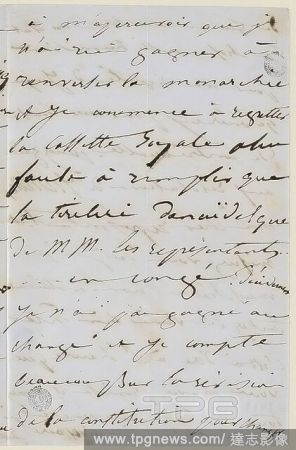 à m'apercevoir que je
n'ai rien gagner à
renverser la monarchie
et je commence à regretter
la cassette Royale plus
facile à remplir que
la tirelire danaïdesque
de M M. les représentants
en congé.
je n'ai pas gagné au
change et je compte
beaucoup sur la révision
de la constitution pour
www.tpgnews.com / 達志影像